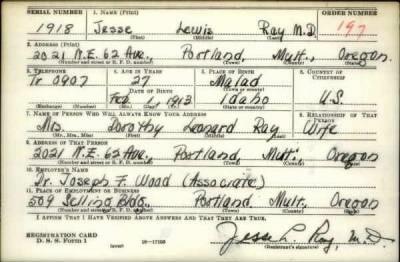 SERIAL NUMBER 1. NAME (Print) ORDER NUMBER
1918 Jesse Lewis Ray M.D. 197
(First) (Middle) (Last)
2. ADDRESS (Print)
2021 N.E. 62 Ave, Portland, Mult, Oregon.
(Number and street or R. F. D. number) (Town) (County) (State)
3. TELEPHONE 4. AGE IN YEARS 5. PLACE OF BIRTH 6. COUNTRY OF CITIZENSHIP
Tr 0907 27 Malad
DATE OF BIRTH
Feb 1913 Idaho U.S.
(Exchange) (Number) (Mo.) (Day) (Yr.) (State or country)
7. NAME OF PERSON WHO WILL ALWAYS KNOW YOUR ADDRESS 8. RELATIONSHIP OF THAT PERSON
Mrs. Dorothy Leonard Ray Wife
(Mr., Mrs., Miss) (First) (Middle) (Last)
9. ADDRESS OF THAT PERSON
2021 N.E. 62 Ave, Portland, Mult. Oregon
(Number and street or R. F. D. number) (Town) (County) (State)
10. EMPLOYER'S NAME
Dr. Joseph F. Wood (Associate)
11. PLACE OF EMPLOYMENT OR BUSINESS
509 Selling Bldg., Portland Mult, Oregon
(Number and street or R. F. D. number) (Town) (County) (State)
I AFFIRM THAT I HAVE VERIFIED ABOVE ANSWERS AND THAT THEY ARE TRUE.
REGISTRATION CARD
D. S. S. Form 1 (over) 16-17105
Jesse L. Ray, M.D.